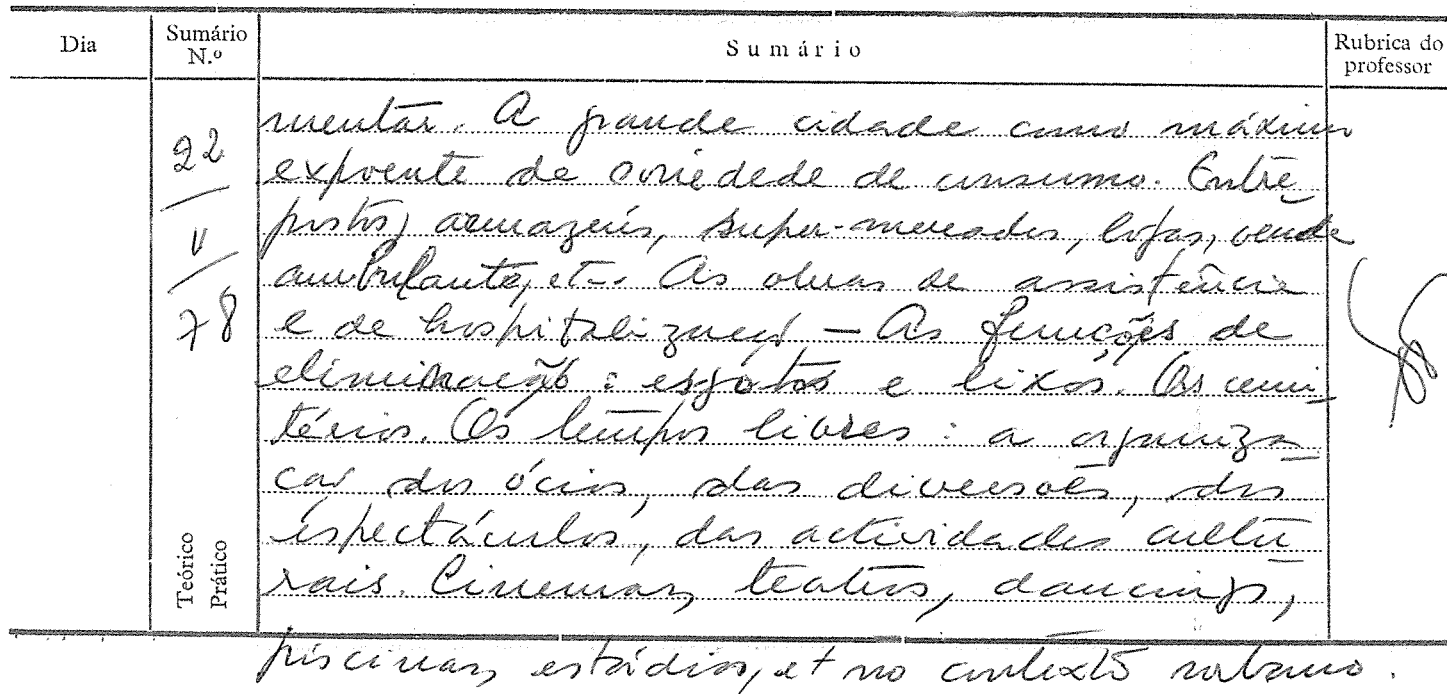 Dia
Sumário N.º
Sumário
Rubrica do professor
22
/
V
/
78
mentar. A grande cidade como máximo
expoente de sociedade de consumo. Entre
postos, armazéns, super-mercados, lojas, venda
ambulante, etc. As obras de assistência
e de hospitalização — As funções de
eliminação: esgotos e lixos. Os cemi
térios. Os tempos livres: a organiza
ção dos ócios, das diversões, dos
espectáculos, das actividades cultu
rais. Cinemas, teatros, dancings,
piscinas, estádios, et no contexto urbano.
Teórico
Prático